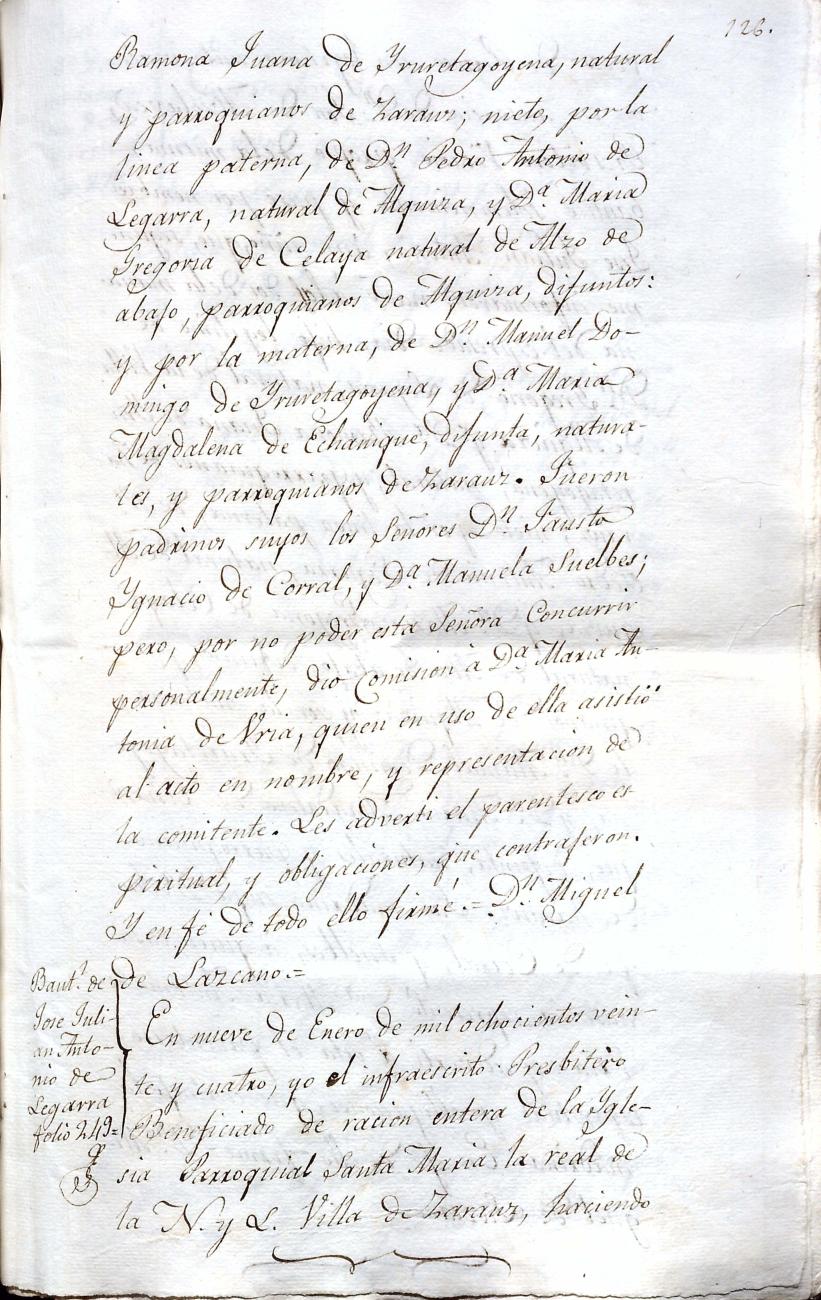 126.
Ramona Juana de Yruretagoyena, natural
y parroquianos de Zarauz; nieto, por la
linea paterna, de Dn. Pedro Antonio de
Legarra, natural de Alquiza, y Da. Maria
Gregoria de Celaya natural de Alzo de
abajo, parroquianos de Alquiza, difuntos:
y por la materna, de Dn. Manuel Do-
mingo de Yruretagoyena, y Da Maria
Magdalena de Echanique, difunta, natura-
les, y parroquianos de Zarauz. Fueron
padrinos suyos los Señores Dn. Fausto
Ygnacio de Corral, y Da. Manuela Suelbes;
pero, por no poder esta Señora Concurrir
personalmente, dio Comision à Da Maria An-
tonia de Vria, quien en uso de ella asistió
al acto en nombre, y representacion de
la comitente. Les adverti el parentesco es
piritual, y obligaciones, que contrajeron.
Y en fé de todo ello firmé.= Dn. Miguel
de Lazcano.=
Baut.o de
Jose Juli-
an Anto-
nio de
Legarra
folio 249=
En nueve de Enero de mil ochocientos vein-
te y cuatro, yo el infraescrito Presbitero
Beneficiado de racion entera de la Ygle-
sia Parroquial Santa Maria la real de
la N. y L. Villa de Zarauz, haciendo